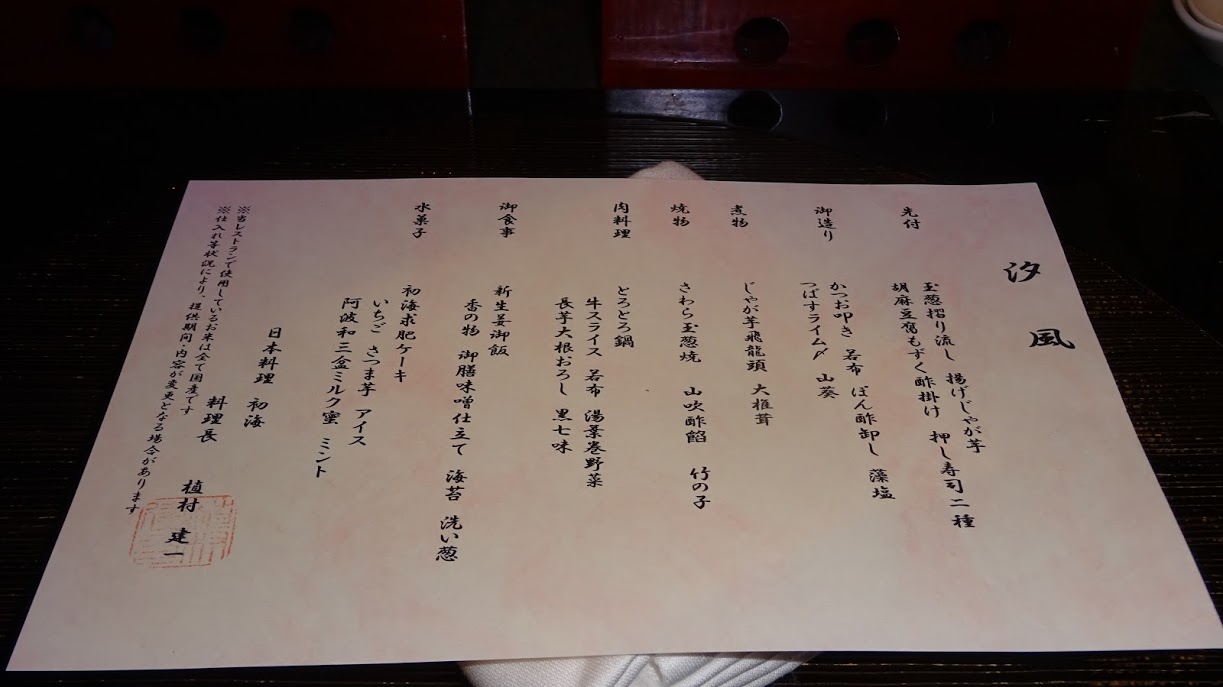 汐風
先付
玉葱摺り流し 揚げじゃが芋
胡麻豆腐もずく酢掛け 押し寿司二種
御造り
かつお叩き 若布 ぽん酢卸し 藻塩
つばすライム〆 山葵
煮物
じゃが芋飛龍頭 大椎茸
焼物
さわら玉葱焼 山吹酢餡 竹の子
肉料理
とろとろ鍋
牛スライス 若布 湯葉巻野菜
長芋大根おろし 黒七味
御食事
新生姜御飯
香の物 御膳味噌仕立て 海苔 洗い葱
水菓子
初海求肥ケーキ
いちご さつま芋 アイス
阿波和三盆ミルク蜜 ミント
日本料理 初海
料理長 植村 建一
※当レストランで使用しているお米は全て国産です
※仕入れ等状況により、提供期間・内容が変更となる場合があります